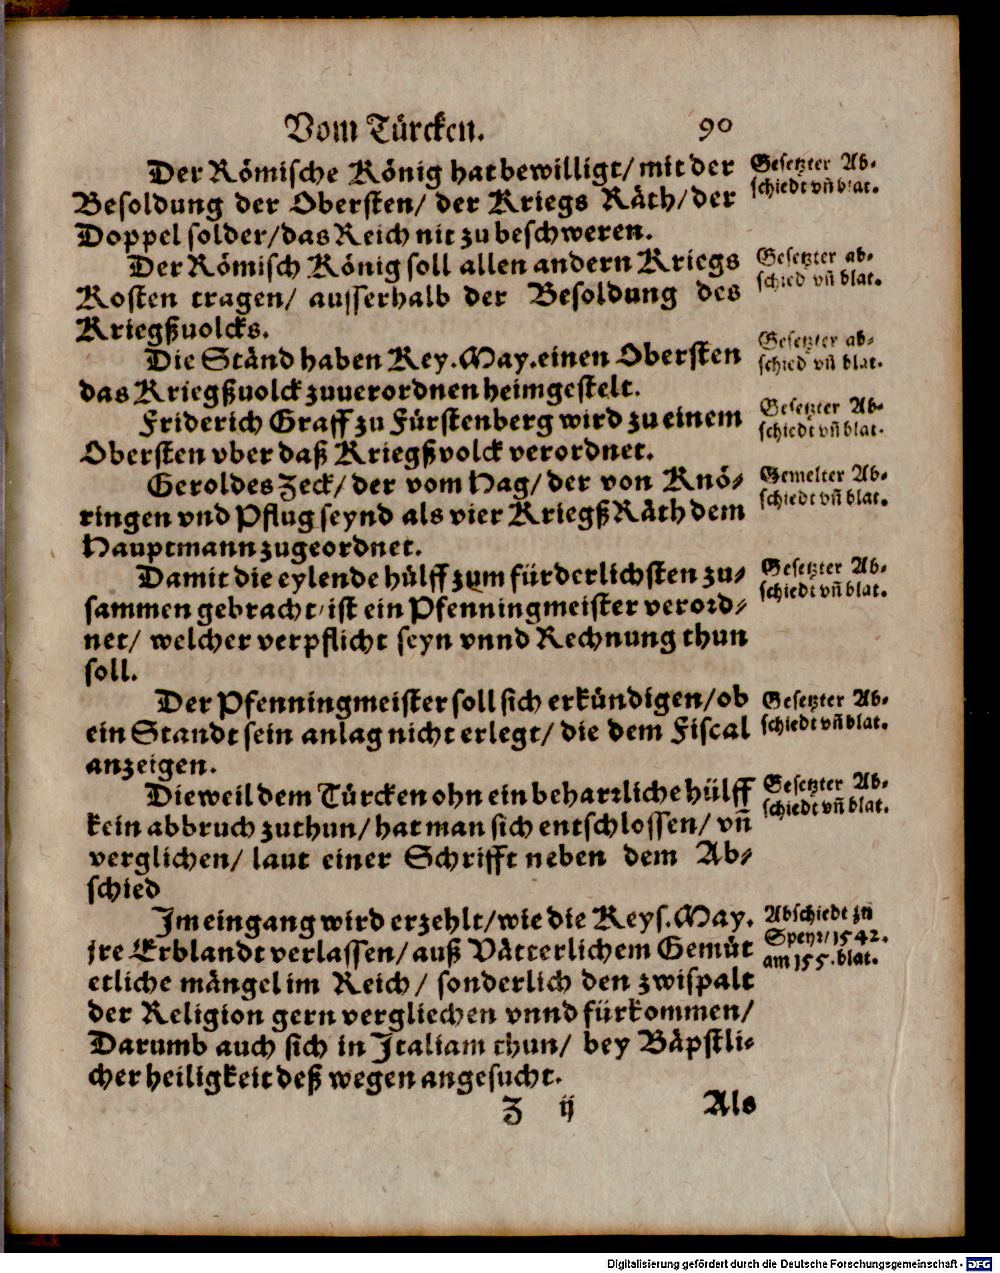 Vom Türcken. 90
Der Römische König hat bewilligt/ mit der
Besoldung der Obersten/ der Kriegs Räth/ der
Doppel solder/ das Reich nit zu beschweren.
Gesetzter Ab-
schiedt vñ blat.
Der Römisch König soll allen andern Kriegs
Kosten tragen/ ausserhalb der Besoldung des
Kriegßuolcks.
Gesetzter ab-
schied vñ blat.
Die Ständ haben Key. May. einen Obersten
das Kriegßuolck zuuerordnen heimgestelt.
Gesetzter ab-
schied vñ blat.
Friderich Graff zu Fürstenberg wird zu einem
Obersten vber daß Kriegßvolck verordnet.
Gesetzter Ab-
schiedt vñ blat.
Geroldes Zeck/ der vom Hag/ der von Knö-
ringen vnd Pflug seynd als vier Kriegß Räth dem
Hauptmann zugeordnet.
Gemelter Ab-
schiedt vñ blat.
Damit die eylende hülff zum fürderlichsten zu-
sammen gebracht/ ist ein Pfenningmeister verord-
net/ welcher verpflicht seyn vnnd Rechnung thun
soll.
Gesetzter Ab-
schiedt vñ blat.
Der Pfenningmeister soll sich erkündigen/ ob
ein Standt sein anlag nicht erlegt/ die dem Fiscal
anzeigen.
Gesetzter Ab-
schiedt vñ blat.
Dieweil dem Türcken ohn ein beharrliche hülff
kein abbruch zuthun/ hat man sich entschlossen/ vñ
verglichen/ laut einer Schrifft neben dem Ab-
schied
Gesetzter Ab-
schiedt vñ blat.
Im eingang wird erzehlt/ wie die Keys. May.
jre Erblandt verlassen/ auß Vätterlichem Gemüt
etliche mängel im Reich/ sonderlich den zwispalt
der Religion gern vergliechen vnnd fürkommen/
Darumb auch sich in Italiam thun/ bey Bäpstli-
cher heiligkeit deß wegen angesucht.
Abschiedt zu
Speyr/ 1542.
am 155. blat.
Z ij Als
Digitalisierung gefördert durch die Deutsche Forschungsgemeinschaft - DFG